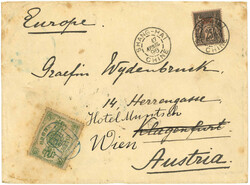 Europe.
SHANG-HAI
CHINE
Graefin Wydenbruck
14. Herrengasse
Hotel
Klagenfurt
Wien
Austria